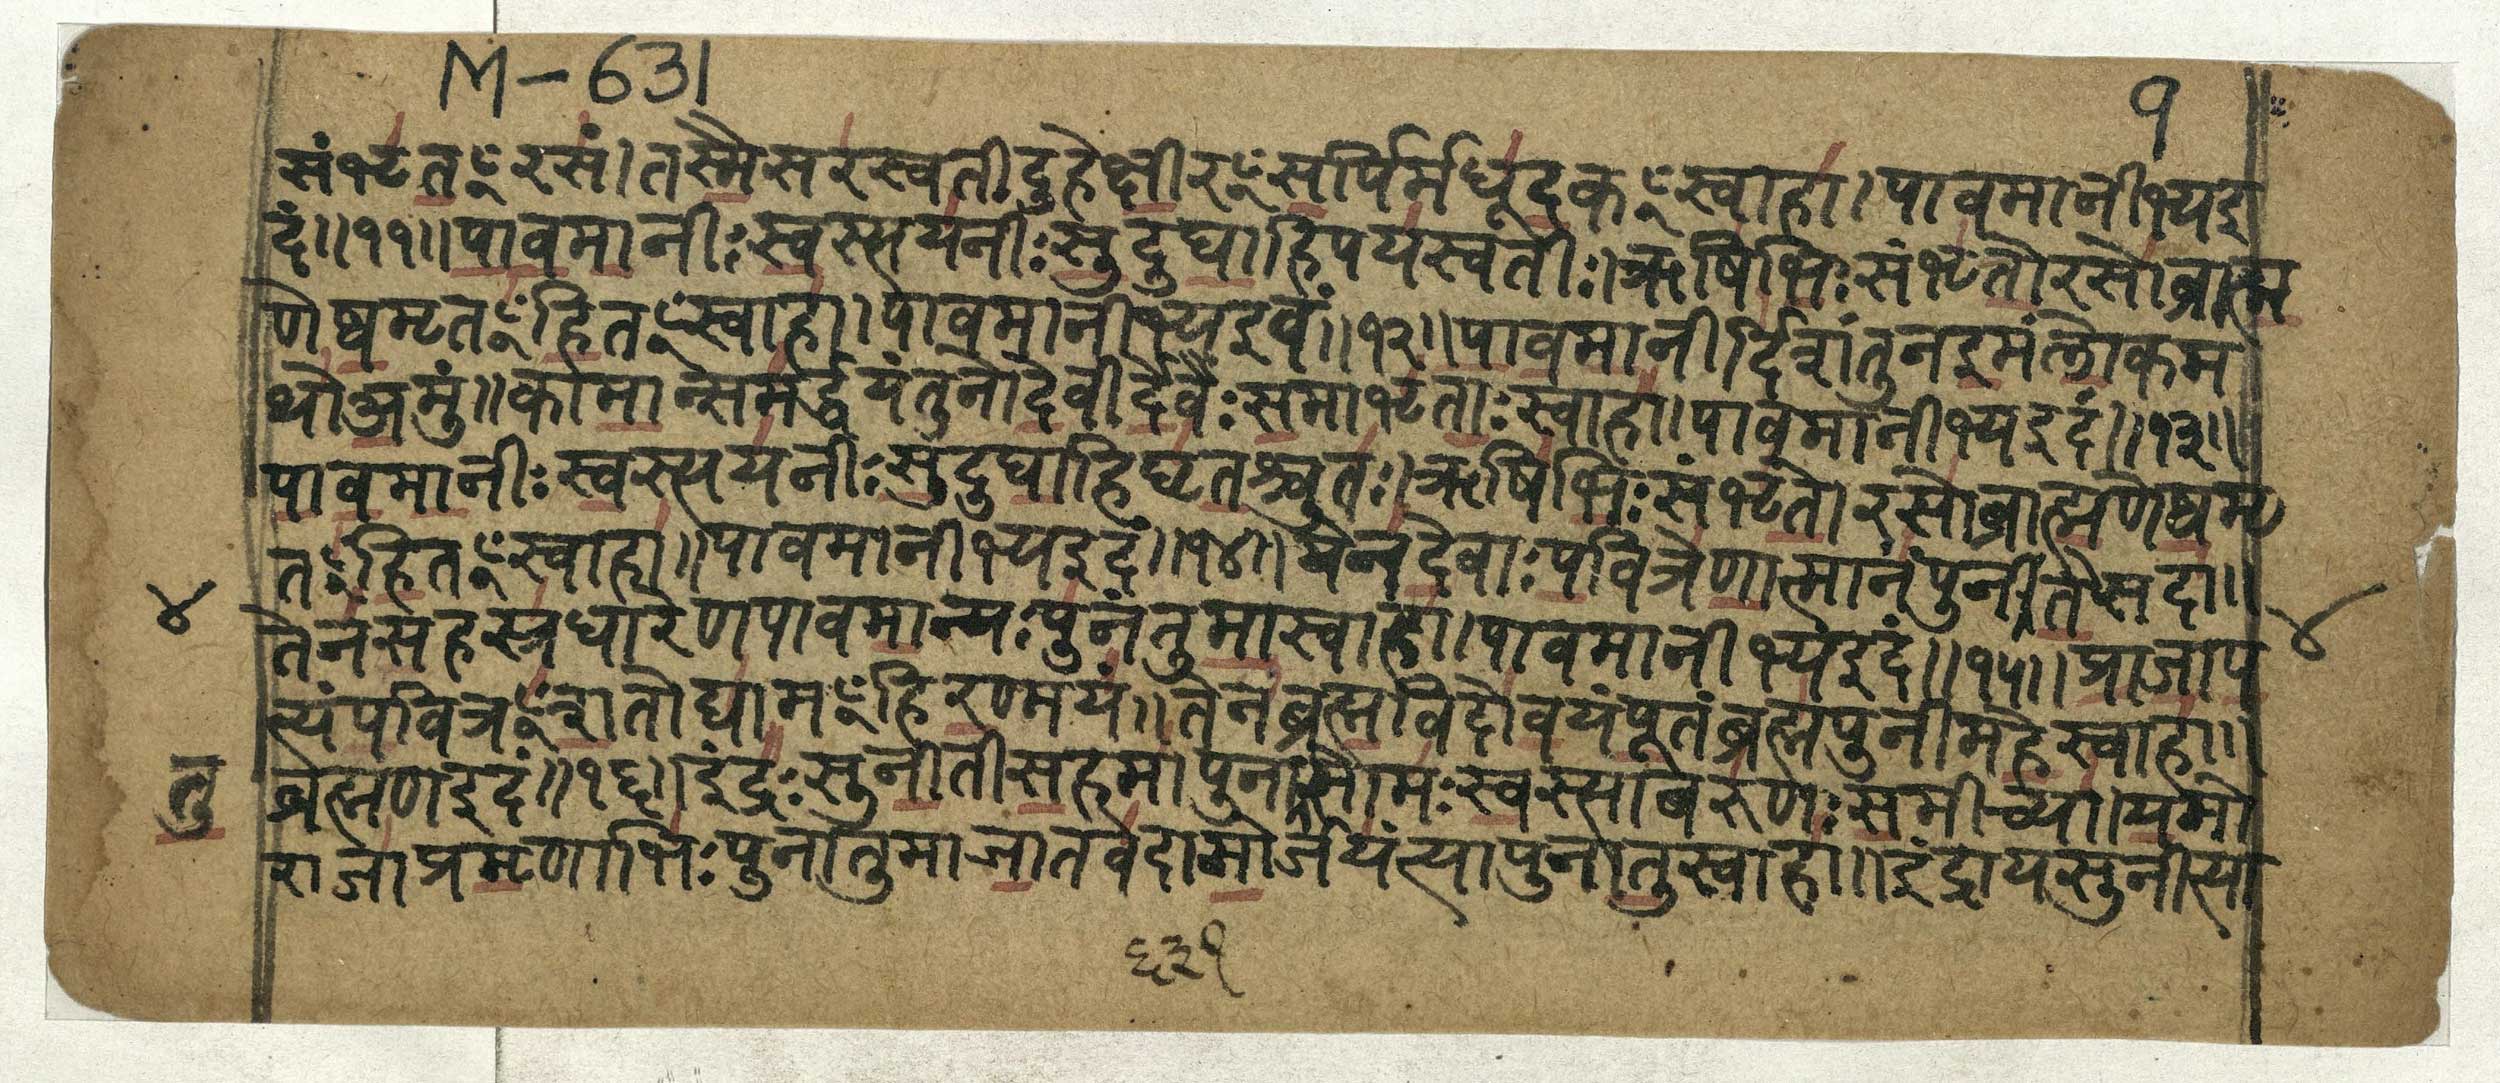 M-631
१
संभृतꣳरसं।तस्मैसरस्वतीदुहेक्षीरꣳसर्पिर्मधूदकꣳस्वाहा।पावमानीभ्यइ
दं॥११॥पावमानीःस्वस्त्ययनीःसुदुघाहिपयस्वतीः।ऋषिभिःसंभृतोरसोब्राह्म
णेष्वमृतꣳहितꣳस्वाहा।पावमानीभ्यइदं॥१२॥पावमानीर्दिशंतुनइमंलोकम
थोअमुं॥कामान्समर्द्धयंतुनोदेवीर्देवैःसमाभृताःस्वाहा॥पावमानीभ्यइदं॥१३॥
पावमानीःस्वस्त्ययनीःसुदुघाहिघृतश्चुतः।ऋषिभिःसंभृतोरसोब्राह्मणेष्वमृ
तꣳहितꣳस्वाहा॥पावमानीभ्यइदं॥१४॥येनदेवाःपवित्रेणात्मानंपुनतेसदा॥
४
तेनसहस्रधारेणपावमान्यःपुनंतुमास्वाहा।पावमानीभ्यइदं॥१५॥प्राजाप
४
त्यंपवित्रꣳशतोद्यामꣳहिरण्मयं॥तेनब्रह्मविदोवयंपूतंब्रह्मपुनीमहेस्वाहा॥
ब्रह्मणइदं॥१६॥इंद्रःसुनीतीसहमापुनासोमःस्वस्त्यावरुणःसमीच्या।यमो
तु
राजाप्रमृणाभिःपुनातुमाजातवेदामोर्जयंत्यापुनातुस्वाहा॥इंद्रायसुनीत्या
६३१